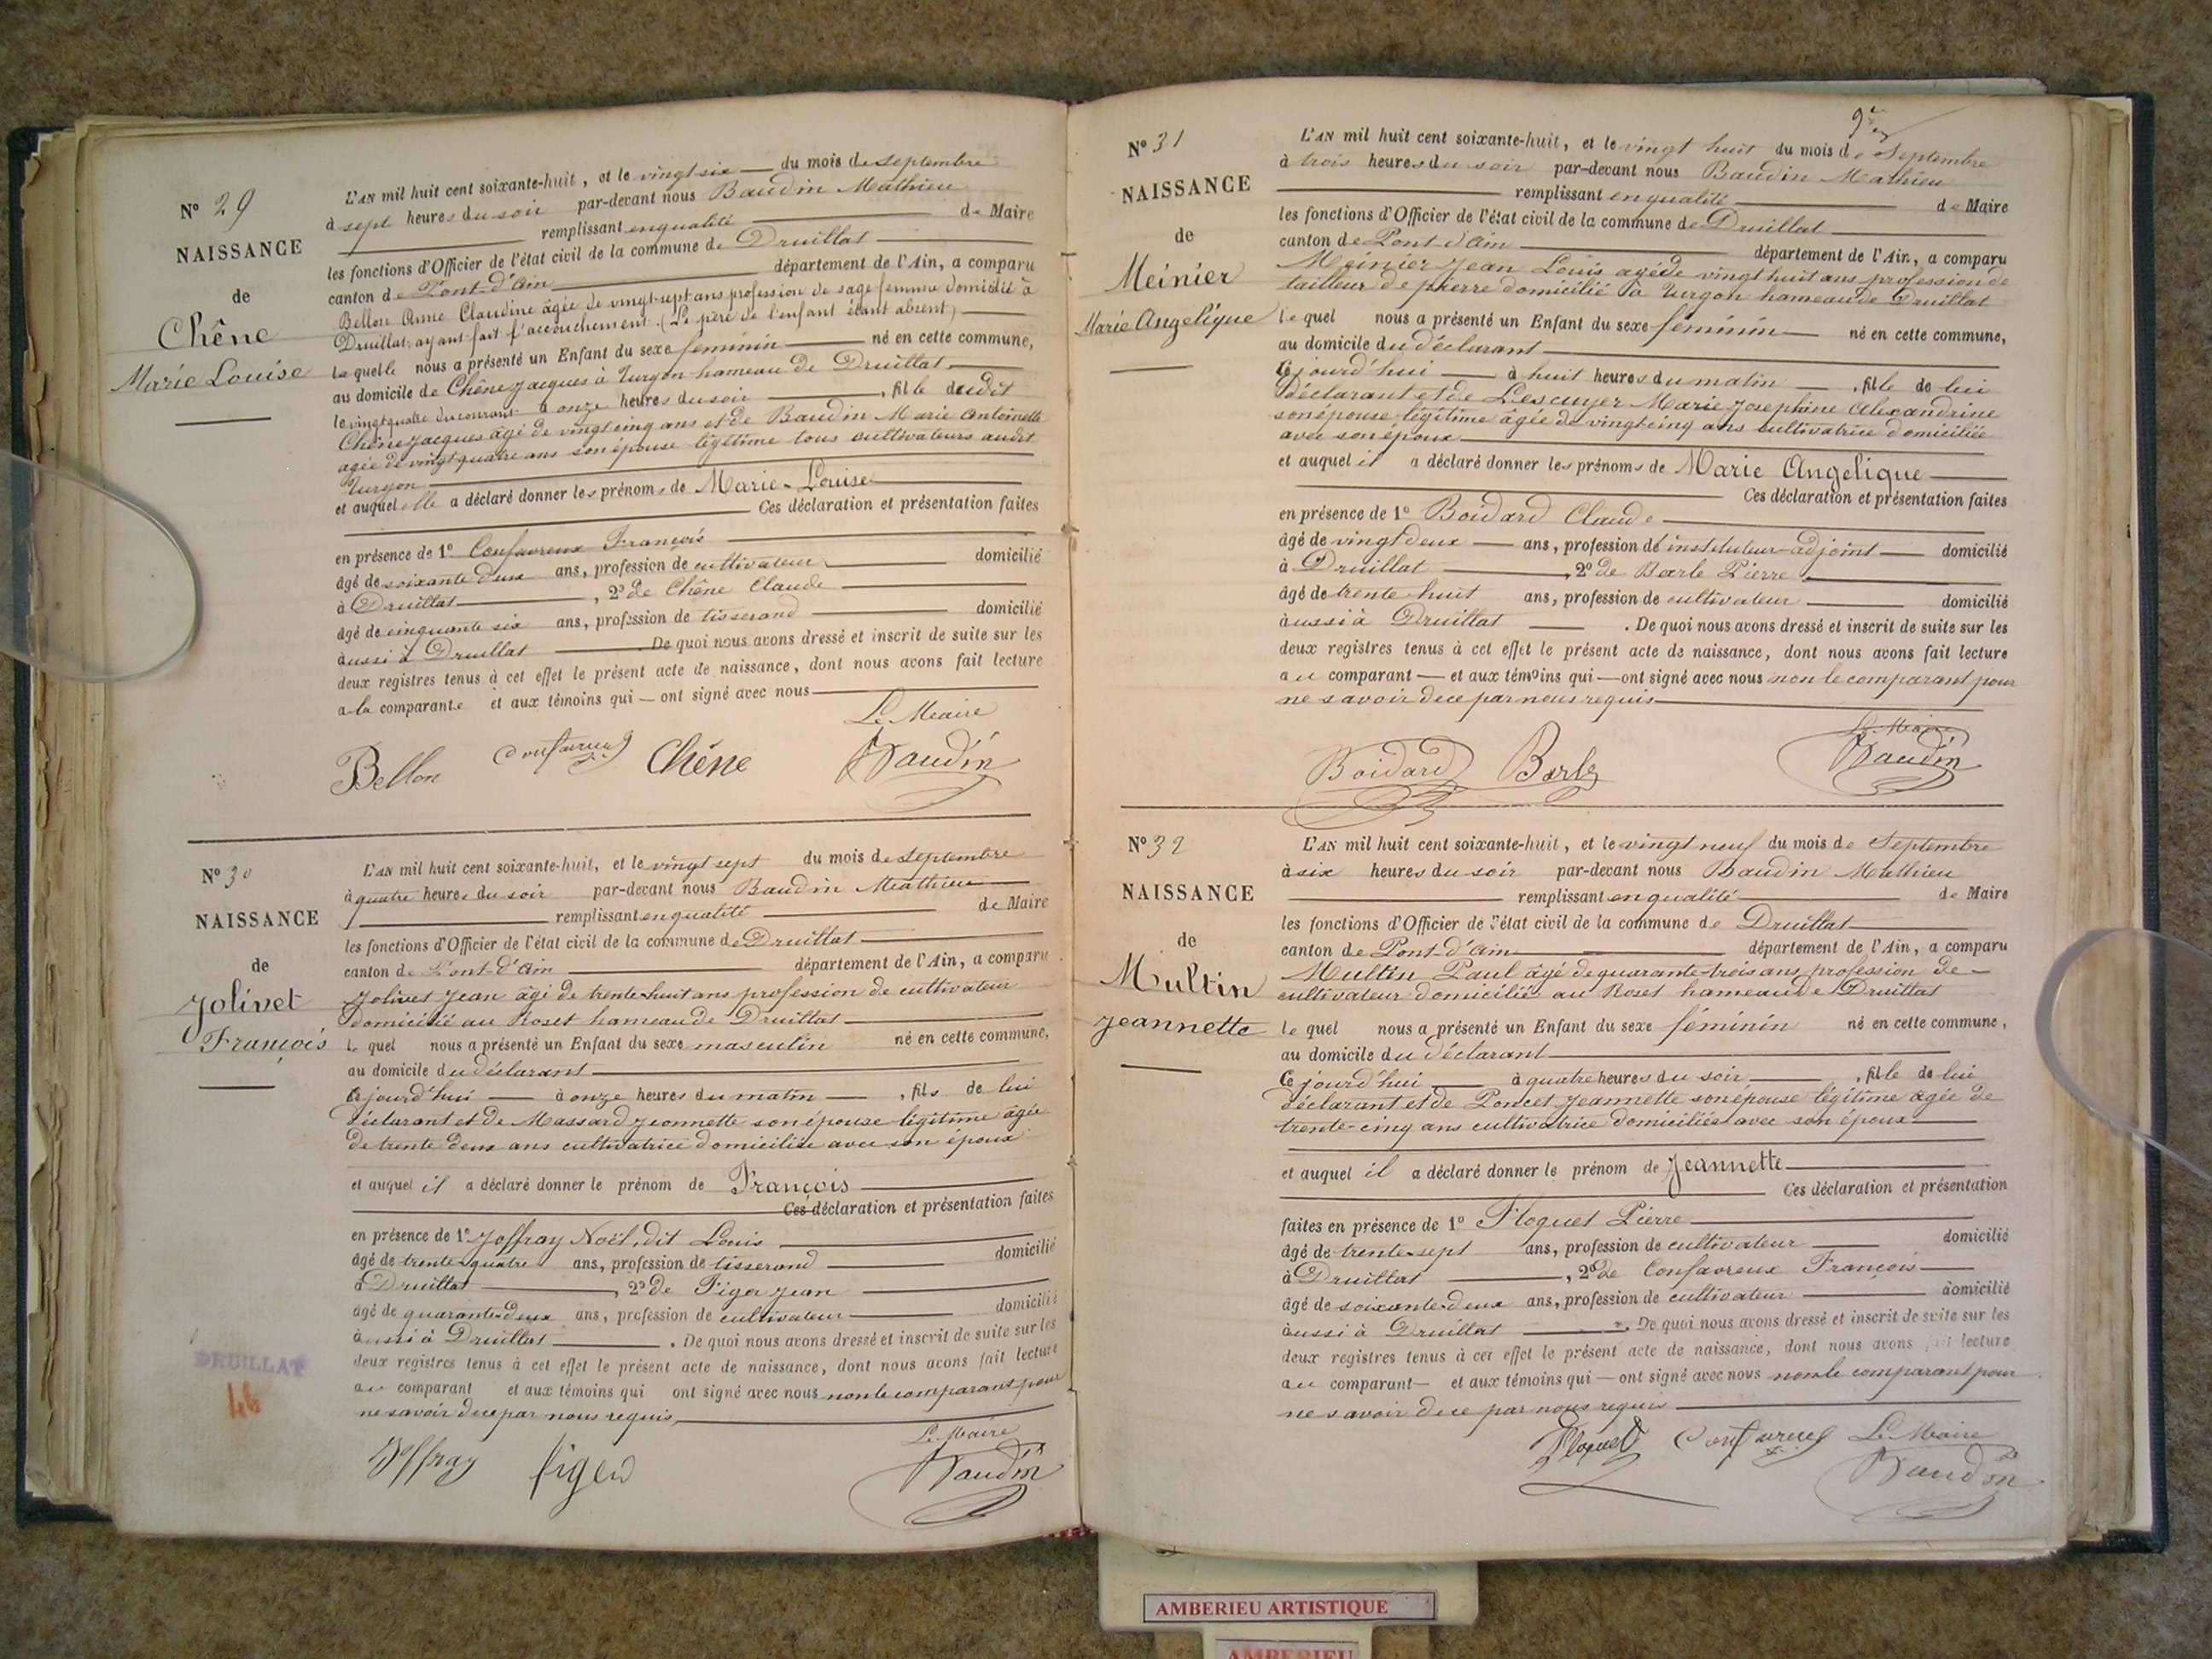 N° 29
NAISSANCE
de
Chêne
Marie Louise
L'AN mil huit cent soixante-huit, et le vingt six du mois de Septembre
à sept heures du soir par-devant nous Baudin Mathieu
remplissant en qualité de Maire
les fonctions d'Officier de l'état civil de la commune de Druillat
canton de Pont-d'Ain département de l'Ain, a comparu
Bellon Anne Claudine âgée de vingt-sept ans profession de sage femme domicilié à
Druillat, ayant fait l'accouchement. (Le père de l'enfant étant absent)
laquelle nous a présenté un Enfant du sexe féminin né en cette commune,
au domicile de Chêne Jacques à Turgon hameau de Druillat
le vingt quatre du courant à onze heures du soir, fille dudit
Chêne Jacques âgé de vingt cinq ans et de Baudin Marie Antoinette
agée de vingt quatre ans son épouse légitime tous cultivateurs audit
Turgon
et auquel elle a déclaré donner les prénoms de Marie-Louise
Ces déclaration et présentation faites
en présence de 1° Confavreux François
âgé de soixante deux ans, profession de cultivateur domicilié
à Druillat, 2° de Chêne Claude
âgé de cinquante six ans, profession de tisserand domicilié
aussi à Druillat De quoi nous avons dressé et inscrit de suite sur les
deux registres tenus à cet effet le présent acte de naissance, dont nous avons fait lecture
a la comparante et aux témoins qui — ont signé avec nous
Le Maire
Bellon Confavreux Chêne Baudin
N° 30
NAISSANCE
de
Jolivet
François
L'AN mil huit cent soixante-huit, et le vingt sept du mois de Septembre
à quatre heures du soir par-devant nous Baudin Mathieu
remplissant en qualité de Maire
les fonctions d'Officier de l'état civil de la commune de Druillat
canton de Pont-d'Ain département de l'Ain, a comparu
Jolivet Jean âgé de trente-huit ans profession de cultivateur
domicilié au Roset hameau de Druillat
le quel nous a présenté un Enfant du sexe masculin né en cette commune,
au domicile du déclarant
Cejourd'hui à onze heures du matin, fils de lui
déclarant et de Massard Jeannette son épouse légitime âgée
de trente deux ans cultivatrice domiciliée avec son époux
et auquel il a déclaré donner le prénom de François
Ces déclaration et présentation faites
en présence de 1° Joffray Noël, dit Louis
âgé de trente quatre ans, profession de tisserand domicilié
à Druillat, 2° de Figer Jean
âgé de quarante-deux ans, profession de cultivateur domicilié
aussi à Druillat. De quoi nous avons dressé et inscrit de suite sur les
deux registres tenus à cet effet le présent acte de naissance, dont nous avons fait lecture
au comparant et aux témoins qui ont signé avec nous non le comparant pour
ne savoir de ce par nous requis
Le Maire
Joffray figer Baudin
DRUILLAT
46
9e
N° 31
NAISSANCE
de
Meinier
Marie Angelique
L'AN mil huit cent soixante-huit, et le vingt huit du mois de Septembre
à trois heures du soir par-devant nous Baudin Mathieu
remplissant en qualité de Maire
les fonctions d'Officier de l'état civil de la commune de Druillat
canton de Pont-d'Ain département de l'Ain, a comparu
Meinier Jean Louis agé de vingt huit ans profession de
tailleur de pierre domicilié à Turgon hameau de Druillat
le quel nous a présenté un Enfant du sexe féminin né en cette commune,
au domicile du déclarant
Cejourd'hui à huit heures du matin, fille de lui
déclarant et de Lescuyer Marie Josephine Alexandrine
son épouse légitime âgée de vingt cinq ans cultivatrice domiciliée
avec son époux
et auquel il a déclaré donner les prénoms de Marie Angelique
Ces déclaration et présentation faites
en présence de 1° Boidard Claude
âgé de vingt deux ans, profession de instituteur-adjoint domicilié
à Druillat, 2° de Barle Pierre
âgé de trente huit ans, profession de cultivateur domicilié
aussi à Druillat. De quoi nous avons dressé et inscrit de suite sur les
deux registres tenus à cet effet le présent acte de naissance, dont nous avons fait lecture
au comparant — et aux témoins qui — ont signé avec nous non le comparant pour
ne savoir de ce par nous requis
Le Maire
Boidard Barle Baudin
N° 32
NAISSANCE
de
Multin
Jeannette
L'AN mil huit cent soixante-huit, et le vingt neuf du mois de Septembre
à six heures du soir par-devant nous Baudin Mathieu
remplissant en qualité de Maire
les fonctions d'Officier de l'état civil de la commune de Druillat
canton de Pont-d'Ain département de l'Ain, a comparu
Multin Paul âgé de quarante-trois ans, profession de
cultivateur domicilié au Roset hameau de Druillat
le quel nous a présenté un Enfant du sexe féminin né en cette commune,
au domicile du déclarant
Cejourd'hui à quatre heures du soir, fille de lui
déclarant et de Poncet Jeannette son épouse légitime âgée de
trente-cinq ans cultivatrice domiciliée avec son époux
et auquel il a déclaré donner le prénom de Jeannette
Ces déclaration et présentation
faites en présence de 1° Floquet Pierre
âgé de trente-sept ans, profession de cultivateur domicilié
à Druillat, 2° de Confavreux François
âgé de soixante-deux ans, profession de cultivateur domicilié
aussi à Druillat. De quoi nous avons dressé et inscrit de suite sur les
deux registres tenus à cet effet le présent acte de naissance, dont nous avons fait lecture
au comparant — et aux témoins qui — ont signé avec nous non le comparant pour
ne savoir de ce par nous requis
Floquet Confavreux Le Maire
Baudin
AMBERIEU ARTISTIQUE
AMBERIEU